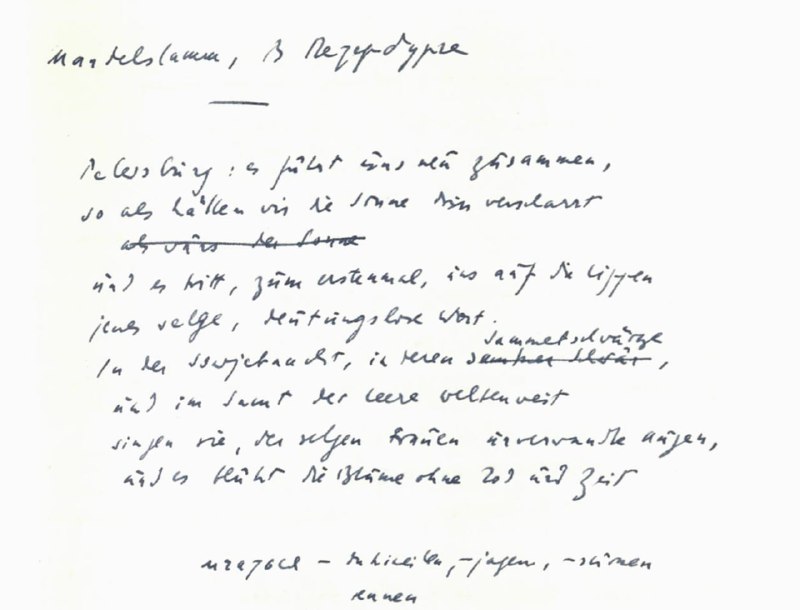 Mandelstamm, В Петербурге
Petersburg: es führt uns neu zusammen,
so als hätten wir die Sonne drin verscharrt
als wärs der Sonne
und es tritt, zum erstenmal, uns auf die Lippen
jenes selge, deutungslose Wort.
Sammetschwärze
In der Sowjetnacht, in deren,
und im Samt der Leere weltenweit
singen sie, der selgen Frauen unverwandte Augen,
und es blüht die Blume ohne Tod und Zeit
dahineilen, –jagen, –stürmen
rennen